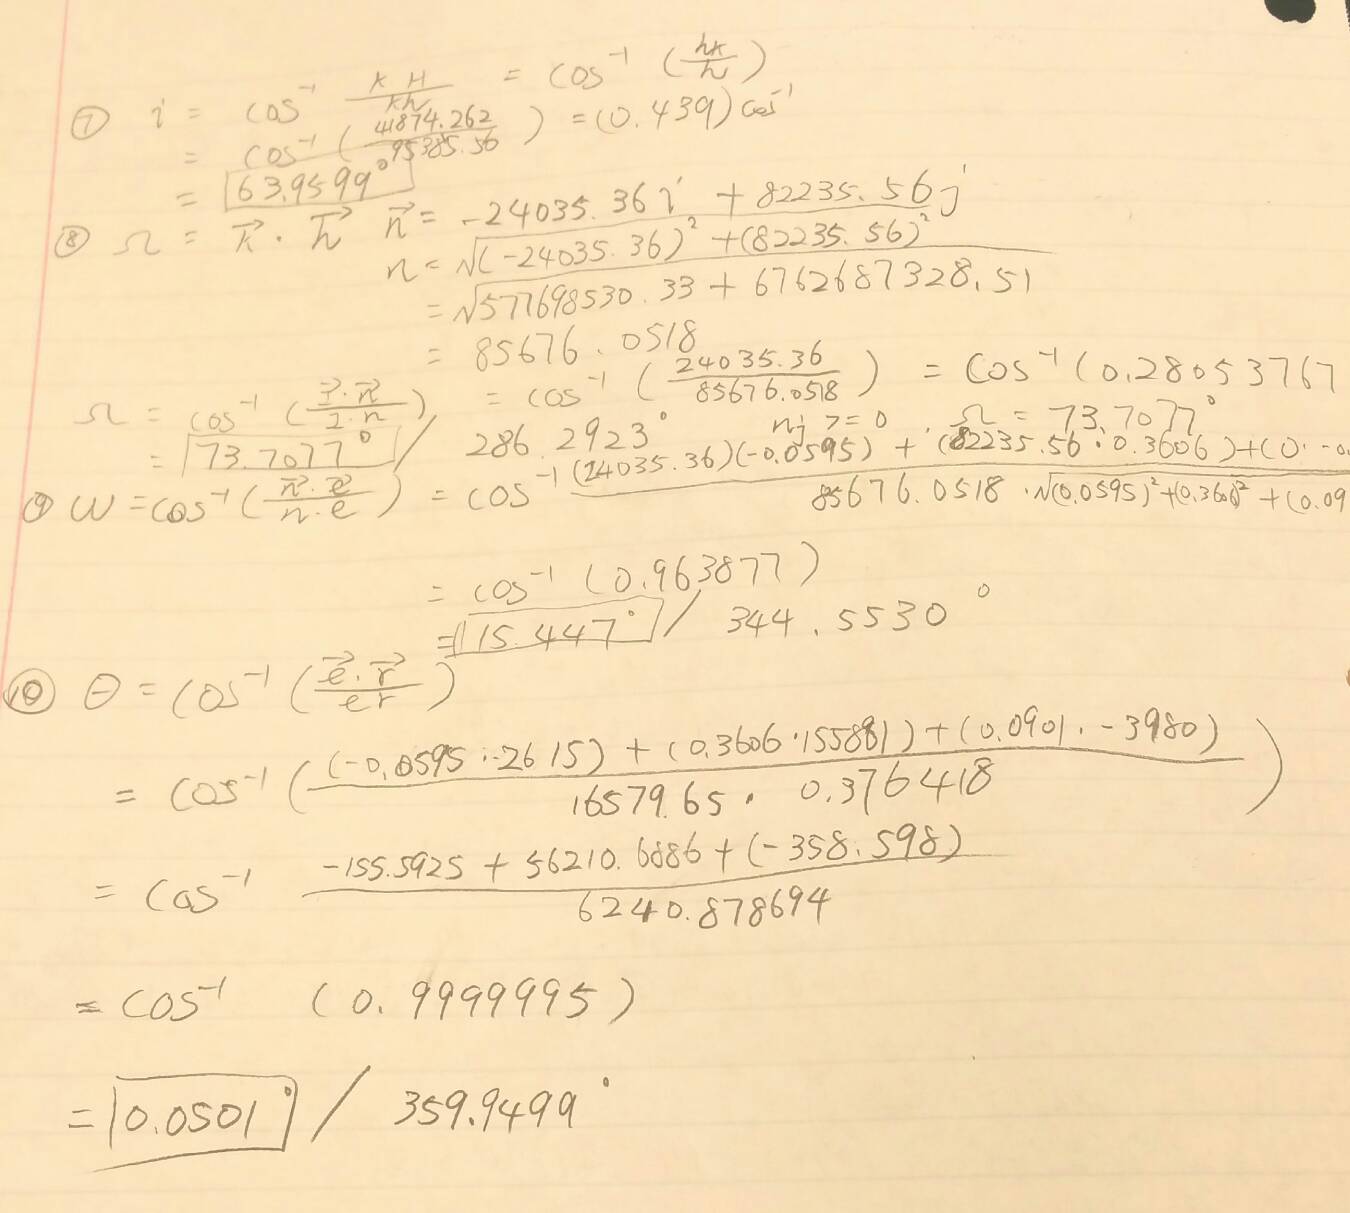 ⑦ i = cos⁻¹ K H / Kh = cos⁻¹ (hk/h)
= cos⁻¹ (41874.262 / 95385.56) = (0.439) cos⁻¹
= 63.9599°
⑧ Ω = K⃗ · h⃗ n⃗ = -24035.36 i + 82235.56 j
n = √(-24035.36)² + (82235.56)²
= √577698530.33 + 6762687328.51
= 85676.0518
Ω = cos⁻¹ (I⃗·n⃗ / I·n) = cos⁻¹ (24035.36 / 85676.0518) = Cos⁻¹ (0.28053767
= 73.7077° / 286.2923° nj >= 0 . Ω = 73.7077°
⑨ W = cos⁻¹ (n⃗·e⃗ / n·e) = cos⁻¹ (24035.36)(-0.0595) + (82235.56 · 0.3606) + (0 · -0. / 85676.0518 · √(0.0595)² + (0.3606)² + (0.09
= cos⁻¹ (0.963877)
= 15.447° / 344.5530°
⑩ θ = cos⁻¹ (e⃗·r⃗ / er)
= cos⁻¹ ((-0.0595 · -2615) + (0.3606 · 155881) + (0.0901 · -3980) / 16579.65 · 0.376418)
= Cos⁻¹ -155.5925 + 56210.6886 + (-358.598) / 6240.878694
= cos⁻¹ (0.9999995)
= 0.0501° / 359.9499°